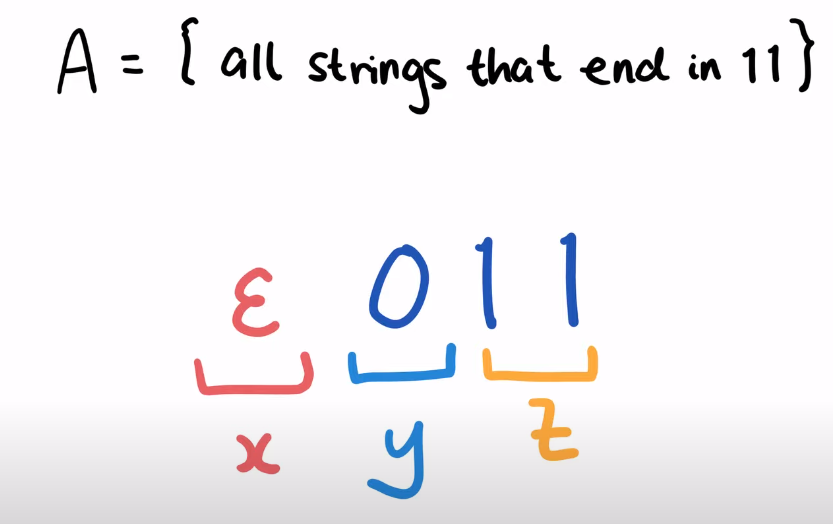 A = { all strings that end in 11}
ε 0 1 1
x y z